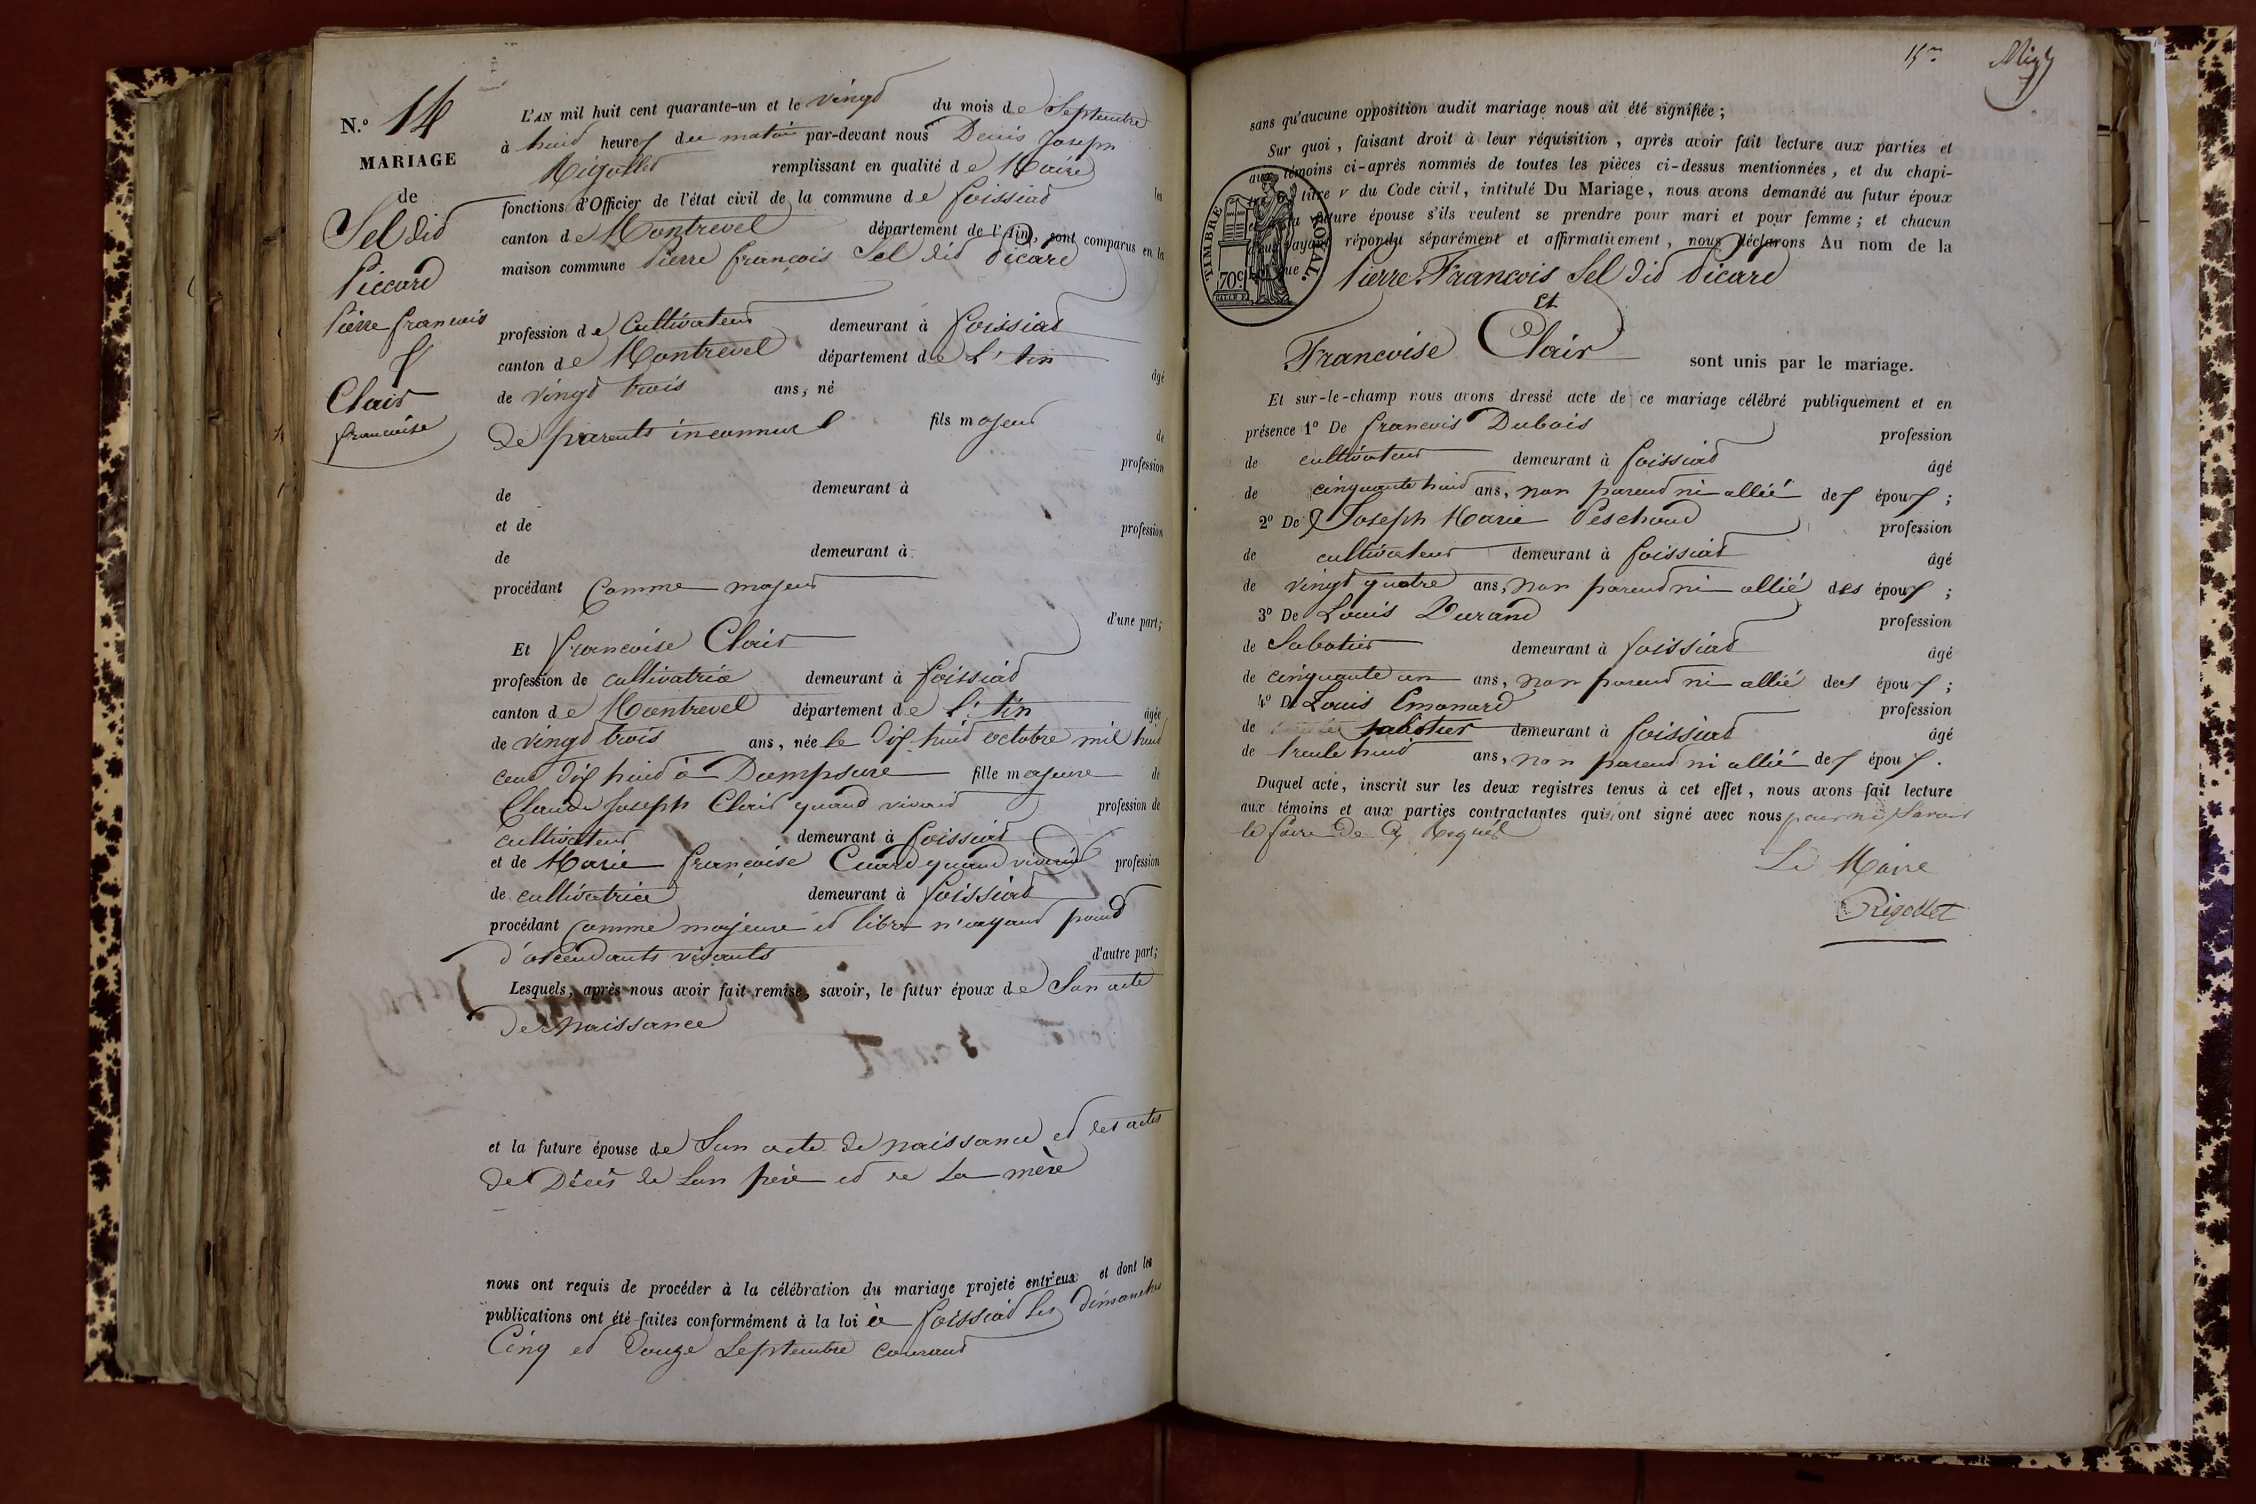 N.º 14
MARIAGE
de
Sel dit
Piccard
Pierre françois
&
Clair
francoise
L'AN mil huit cent quarante-un et le vingt du mois de Septembre
à huit heures du matin par-devant nous Denis Joseph
Rigollet remplissant en qualité de Maire les
fonctions d'Officier de l'état civil de la commune de foissiat
canton de Montrevel département de l'Ain, sont comparus en la
maison commune Pierre françois Sel dit Picard
profession de Cultivateur demeurant à foissiat
canton de Montrevel département de L'Ain âgé
de vingt trois ans, né
de parents inconnus fils majeur de
profession
de demeurant à
et de profession
de demeurant à
procédant Comme majeur
d'une part;
Et francoise Clair
profession de cultivatrice demeurant à foissiat
canton de Montrevel département de l'Ain âgée
de vingt trois ans, née le dix huit octobre mil huit
cent dix huit à Dompsure fille majeure de
Claude Joseph Clair quand vivait profession de
cultivateur demeurant à foissiat
et de Marie françoise Cuard quand vivait profession
de cultivatrice demeurant à foissiat
procédant comme majeure et libre n'ayant point
d'ascendants vivants d'autre part;
Lesquels, après nous avoir fait remise, savoir, le futur époux de Son acte
de naissance
et la future épouse de Son acte de naissance et les actes
de Décès de Son père et de Sa mère
nous ont requis de procéder à la célébration du mariage projeté entr'eux et dont les
publications ont été faites conformément à la loi à foissiat les dimanches
Cinq et Douze Septembre courant
15
sans qu'aucune opposition audit mariage nous ait été signifiée;
Sur quoi, faisant droit à leur réquisition, après avoir fait lecture aux parties et
aux témoins ci-après nommés de toutes les pièces ci-dessus mentionnées, et du chapi-
tre 6, titre V du Code civil, intitulé Du Mariage, nous avons demandé au futur époux
et à la future épouse s'ils veulent se prendre pour mari et pour femme; et chacun
d'eux ayant répondu séparément et affirmativement, nous déclarons Au nom de la
Loi que Pierre François Sel dit Picard
Et
Francoise Clair sont unis par le mariage.
TIMBRE ROYAL.
70c
Et sur-le-champ nous avons dressé acte de ce mariage célébré publiquement et en
présence 1º De francois Dubois profession
de cultivateur demeurant à foissiat âgé
de cinquante huit ans, non parent ni allié des époux;
2º De Joseph Marie Peschoud profession
de cultivateur demeurant à foissiat âgé
de vingt quatre ans, non parent ni allié des époux;
3º De Louis Durand profession
de Sabotier demeurant à foissiat âgé
de cinquante un ans, non parent ni allié des époux;
4º De Louis Emonard profession
de sabotier demeurant à foissiat âgé
de trente huit ans, non parent ni allié des époux.
Duquel acte, inscrit sur les deux registres tenus à cet effet, nous avons fait lecture
aux témoins et aux parties contractantes qui ont signé avec nous pour ne Savoir
le faire de ce Requis
Le Maire
Rigollet